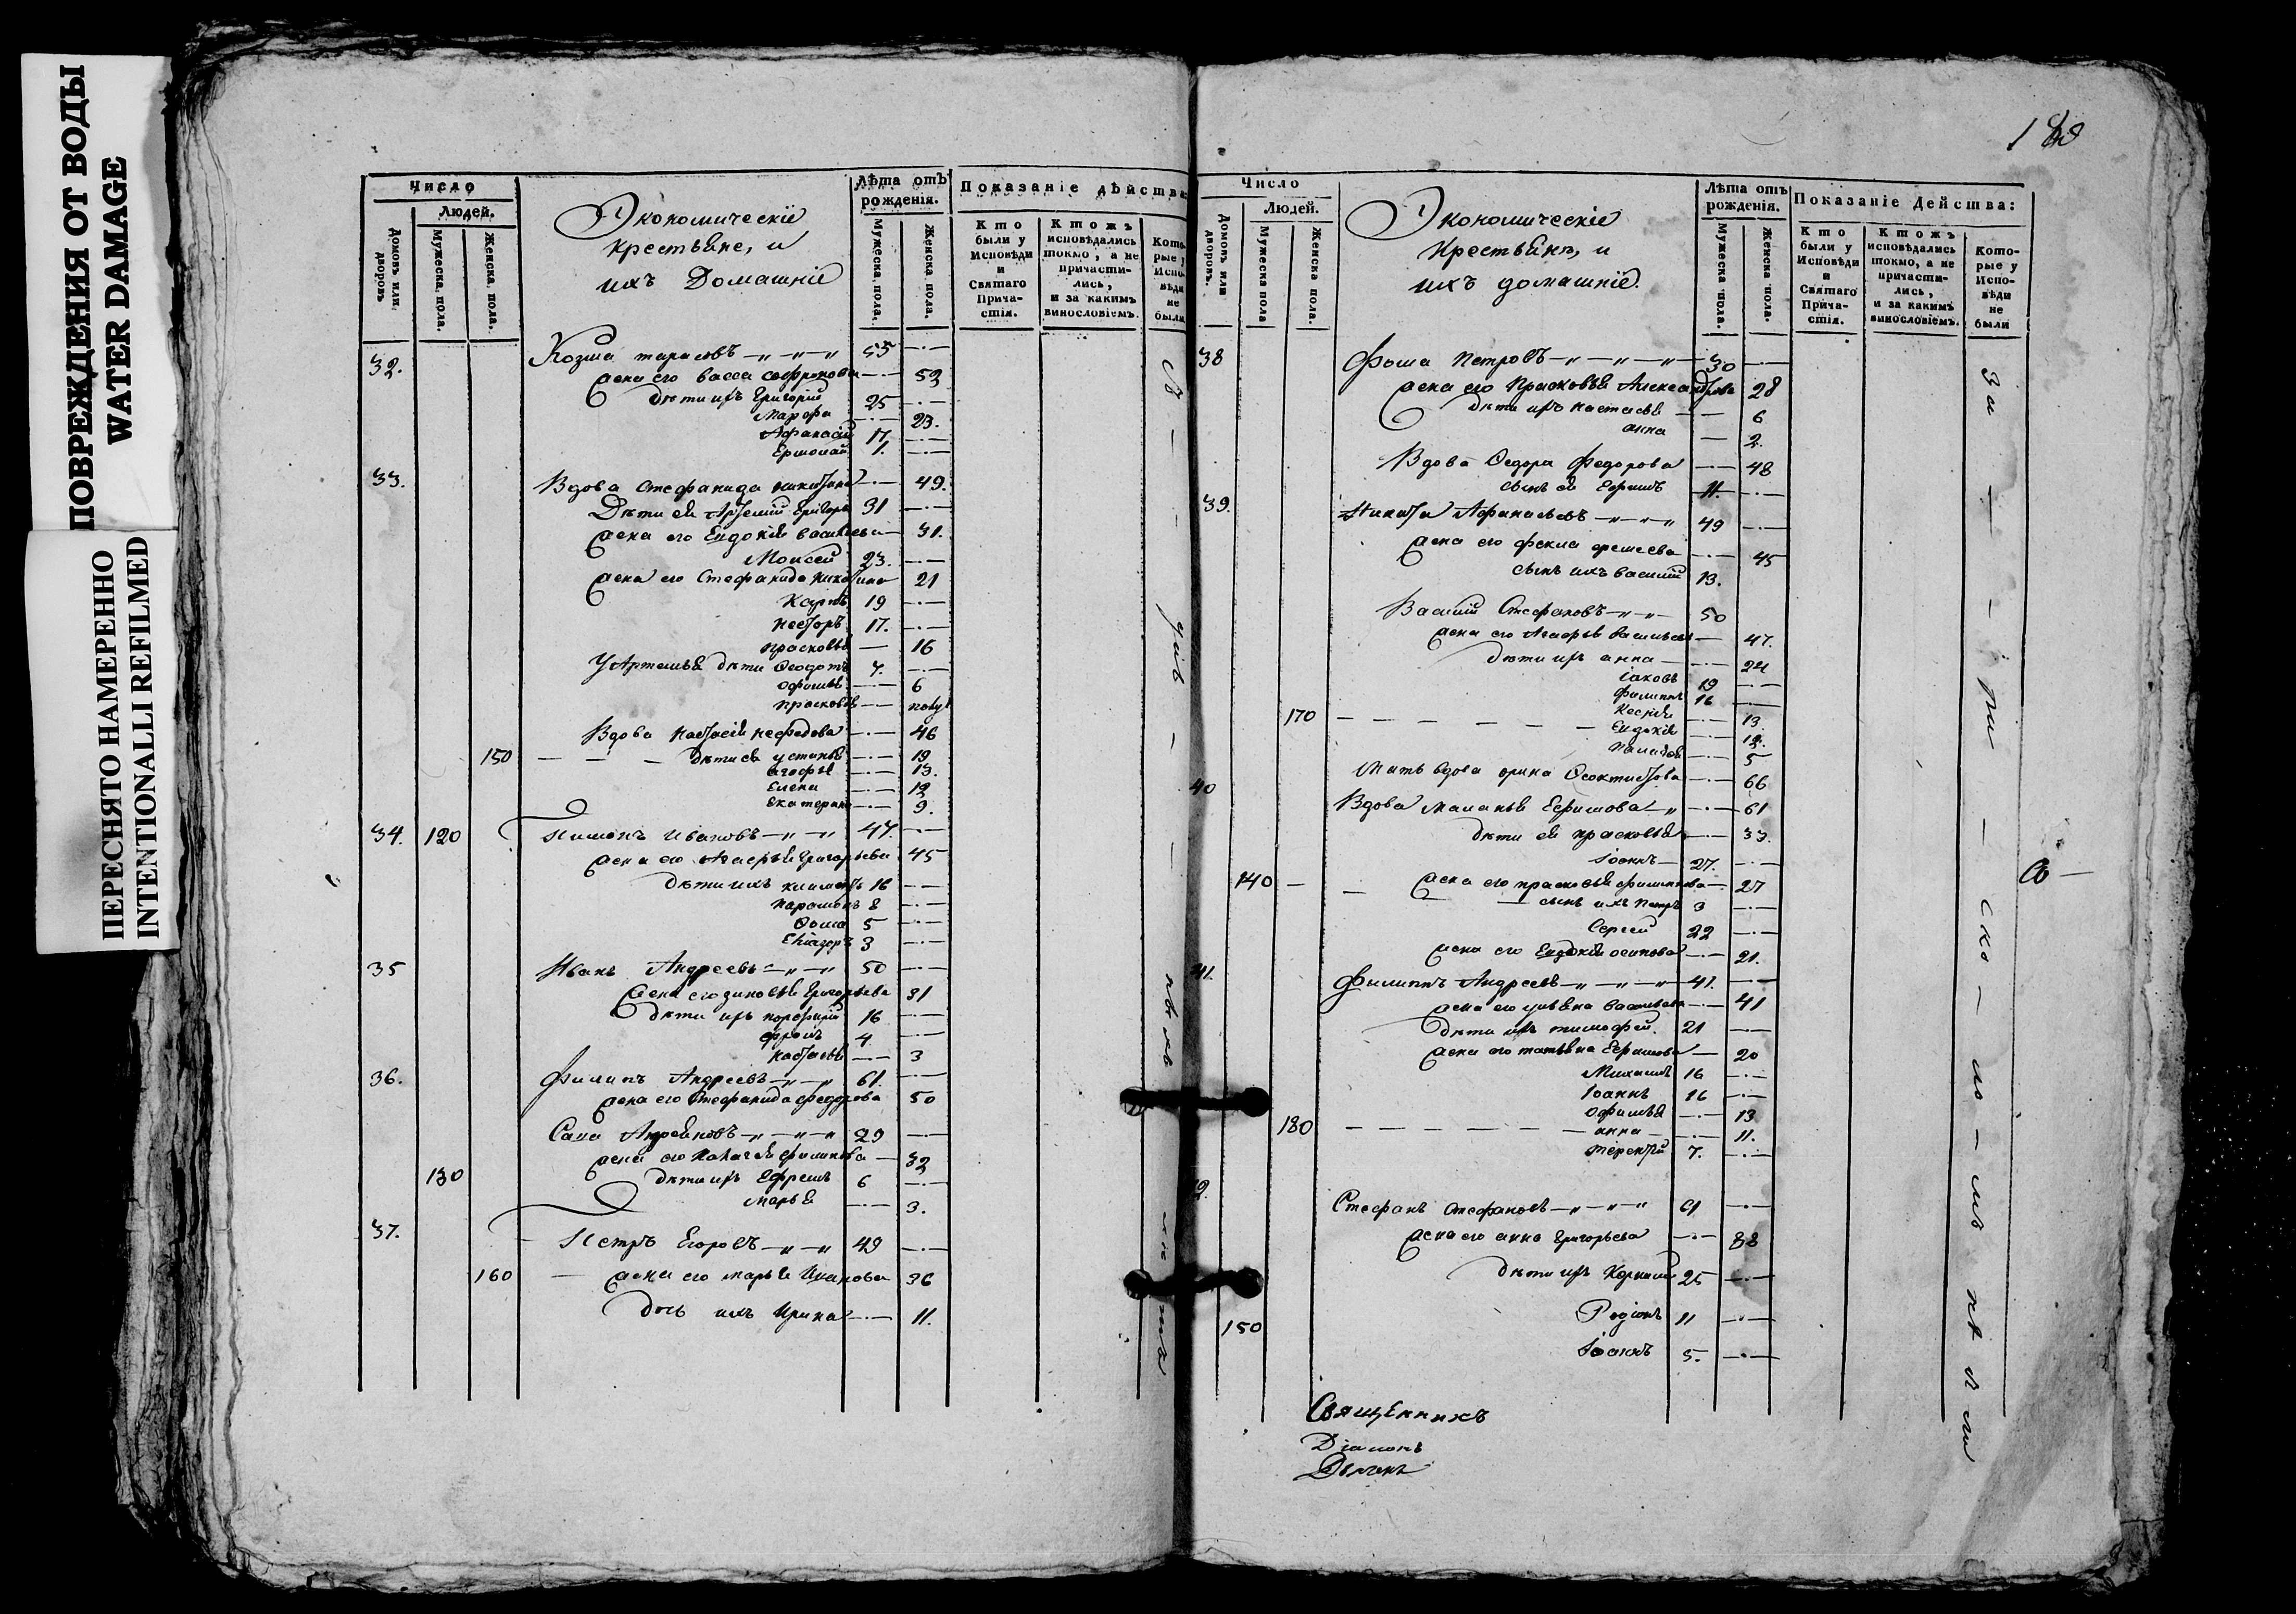 ПОВРЕЖДЕНИЯ ОТ ВОДЫ
WATER DAMAGE
ПЕРЕСНЯТО НАМЕРЕННО
INTENTIONALLI REFILMED
Число
Людей.
Домовъ или дворовъ
Мужеска пола.
Женска пола.
Экономическіе
крестьяне, и
ихъ Домашніе
Лѣта отъ рожденія.
Мужеска пола.
Женска пола.
Показаніе дѣйства
Кто были у Исповѣди и Святаго Прича-стія.
Ктожъ исповѣдались токмо, а не причасти-лись, и за какимъ винословіемъ.
Кото-рые у Испо-вѣди не были
32. Козма тарасовъ 55
жена его васса софронова 52
дѣти ихъ Григорій 25
Марфа 23.
Афанасій 17
Ермолай 1.
33. Вдова Стефанида никитина 49.
Дѣти ея Артемій Григорьевъ 31
жена его Евдокія васильева 31.
Моисей 23.
жена его Стефанида 21
Карпъ 19
Несторъ 17.
прасковья 16
У Артемья дѣти Ѳеодотъ 7.
офимья 6
прасковья полу
Вдова Настасія нефедова 46
150 дѣти ея устинья 19
агафья 13.
Елена 12
Екатерина 9.
34. 120 Пименъ Ивановъ 47.
жена его Агафья Григорьева 45
дѣти ихъ климентъ 16
парамонъ 8
Ѳома 5
3
35 Иванъ Андреевъ 50
жена его зиновья Григорьева 31
дѣти ихъ порфирій 16
фролъ 4
настасья 3
36. Филипъ Андреевъ 61.
жена его Стефанида федорова 50
Сава Андреяновъ 29
жена его филипова 32
130 дѣти ихъ Ефремъ 6
марья 3.
37. Петръ Егоровъ 49
160 жена его марья Иванова 36
дочь ихъ Ирина 11.
188
Число
Людей.
Домовъ или дворовъ.
Мужеска пола
Женска пола.
Экономическіе
Крестьянъ, и
ихъ домашніе.
Лѣта отъ рожденія.
Мужеска пола.
Женска пола.
Показаніе Дейсшва:
Кто были у Исповѣди и Святаго Прича-стія.
Ктожъ исповѣдались токмо, а не причасти-лись, и за какимъ винословіемъ.
Кото-рые у Испо-вѣди не были
38 Фома Петровъ 30
жена его Прасковья Александрова 28
дѣти ихъ настасья 6
анна 2.
Вдова Ѳедора Федорова 48
сынъ ея Ефимъ 11.
39. Никита Афанасьевъ 49
жена его фекла 45
сынъ ихъ василій 13.
Василій Стефановъ 50
жена его Агафья васильева 47.
дѣти ихъ анна 24
іаковъ 19
Филиппъ 16
170 Ксенія 13.
Евдокія 12.
5
Мать вдова орина Ѳеоктистова 66
40 Вдова маланья Ефимова 61
дѣти ея прасковья 33.
Іоаннъ 27.
140 жена его прасковья филипова 27
сынъ ихъ Петръ 3
Сергей 22
жена его Евдокія осипова 21.
41. Филиппъ Андреевъ 41.
жена его ульяна васильева 41
дѣти ихъ тимофей. 21
жена его татьяна Ефимова 20
Михаилъ 16
Іоаннъ 16
офимья 13
180 анна 11.
терентій 7.
42. Стефанъ Стефановъ 61
жена его анна Григорьева 58
дѣти ихъ Корнилій 25
Родіонъ 11
150 Іоаннъ 5.
Священникъ
Діаконъ